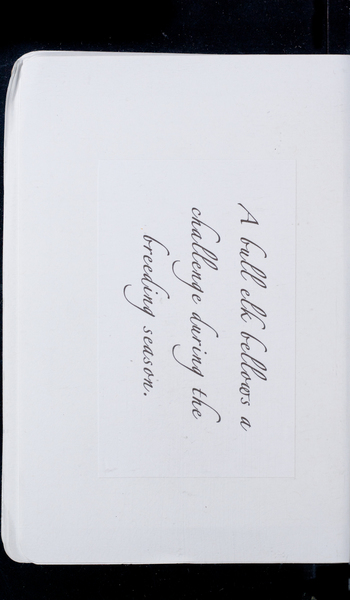 A bull elk bellows a
challenge during the
breeding season.